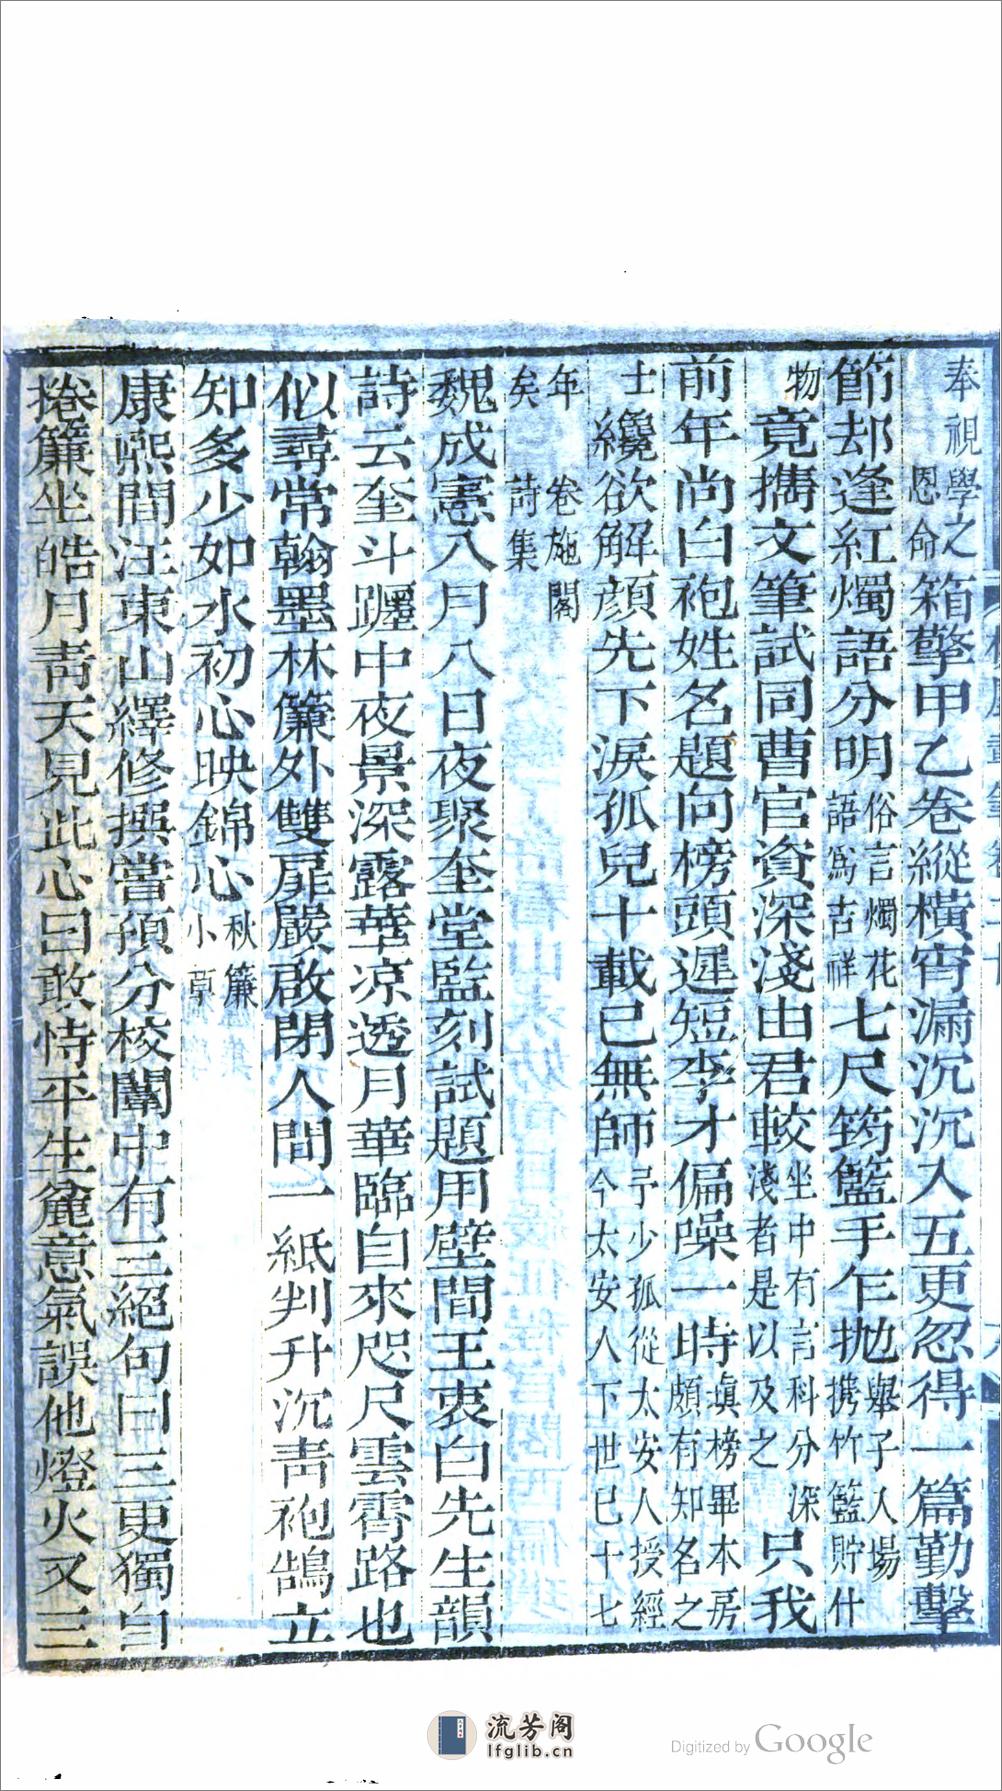 奉視學之恩命箱擎甲乙卷縱橫宵漏沉沉入五更忽得一篇勤擊
節却逢紅燭語分明俗言燭花語爲吉祥七尺筠籃手乍抛舉子入場携竹籃貯什
物竟擕文筆試同曹官資深淺由君較坐中有言科分深淺者是以及之只我
前年尚白袍姓名題向榜頭遲短李才偏噪一時塡榜畢本房頗有知名之
士纔欲解顔先下淚孤兒十載已無師予少孤從太安人授經今太安人下世已十七
年矣卷施閣詩集
魏成憲八月八日夜聚奎堂監刻試題用壁間王衷白先生韻
詩云奎斗躔中夜景深露華凉透月華臨自來咫尺雲霄路也
似尋常翰墨林簾外雙扉嚴啟閉人間一紙判升沉靑袍鵠立
知多少如水初心映錦心秋簾小草
康熙間汪東山繹修撰嘗預分校闈中有三絕句曰三更獨自
捲簾坐皓月靑天見此心曰敢恃平生麄意氣誤他燈火又三
流芳阁
lfglib.cn
Digitized by Google